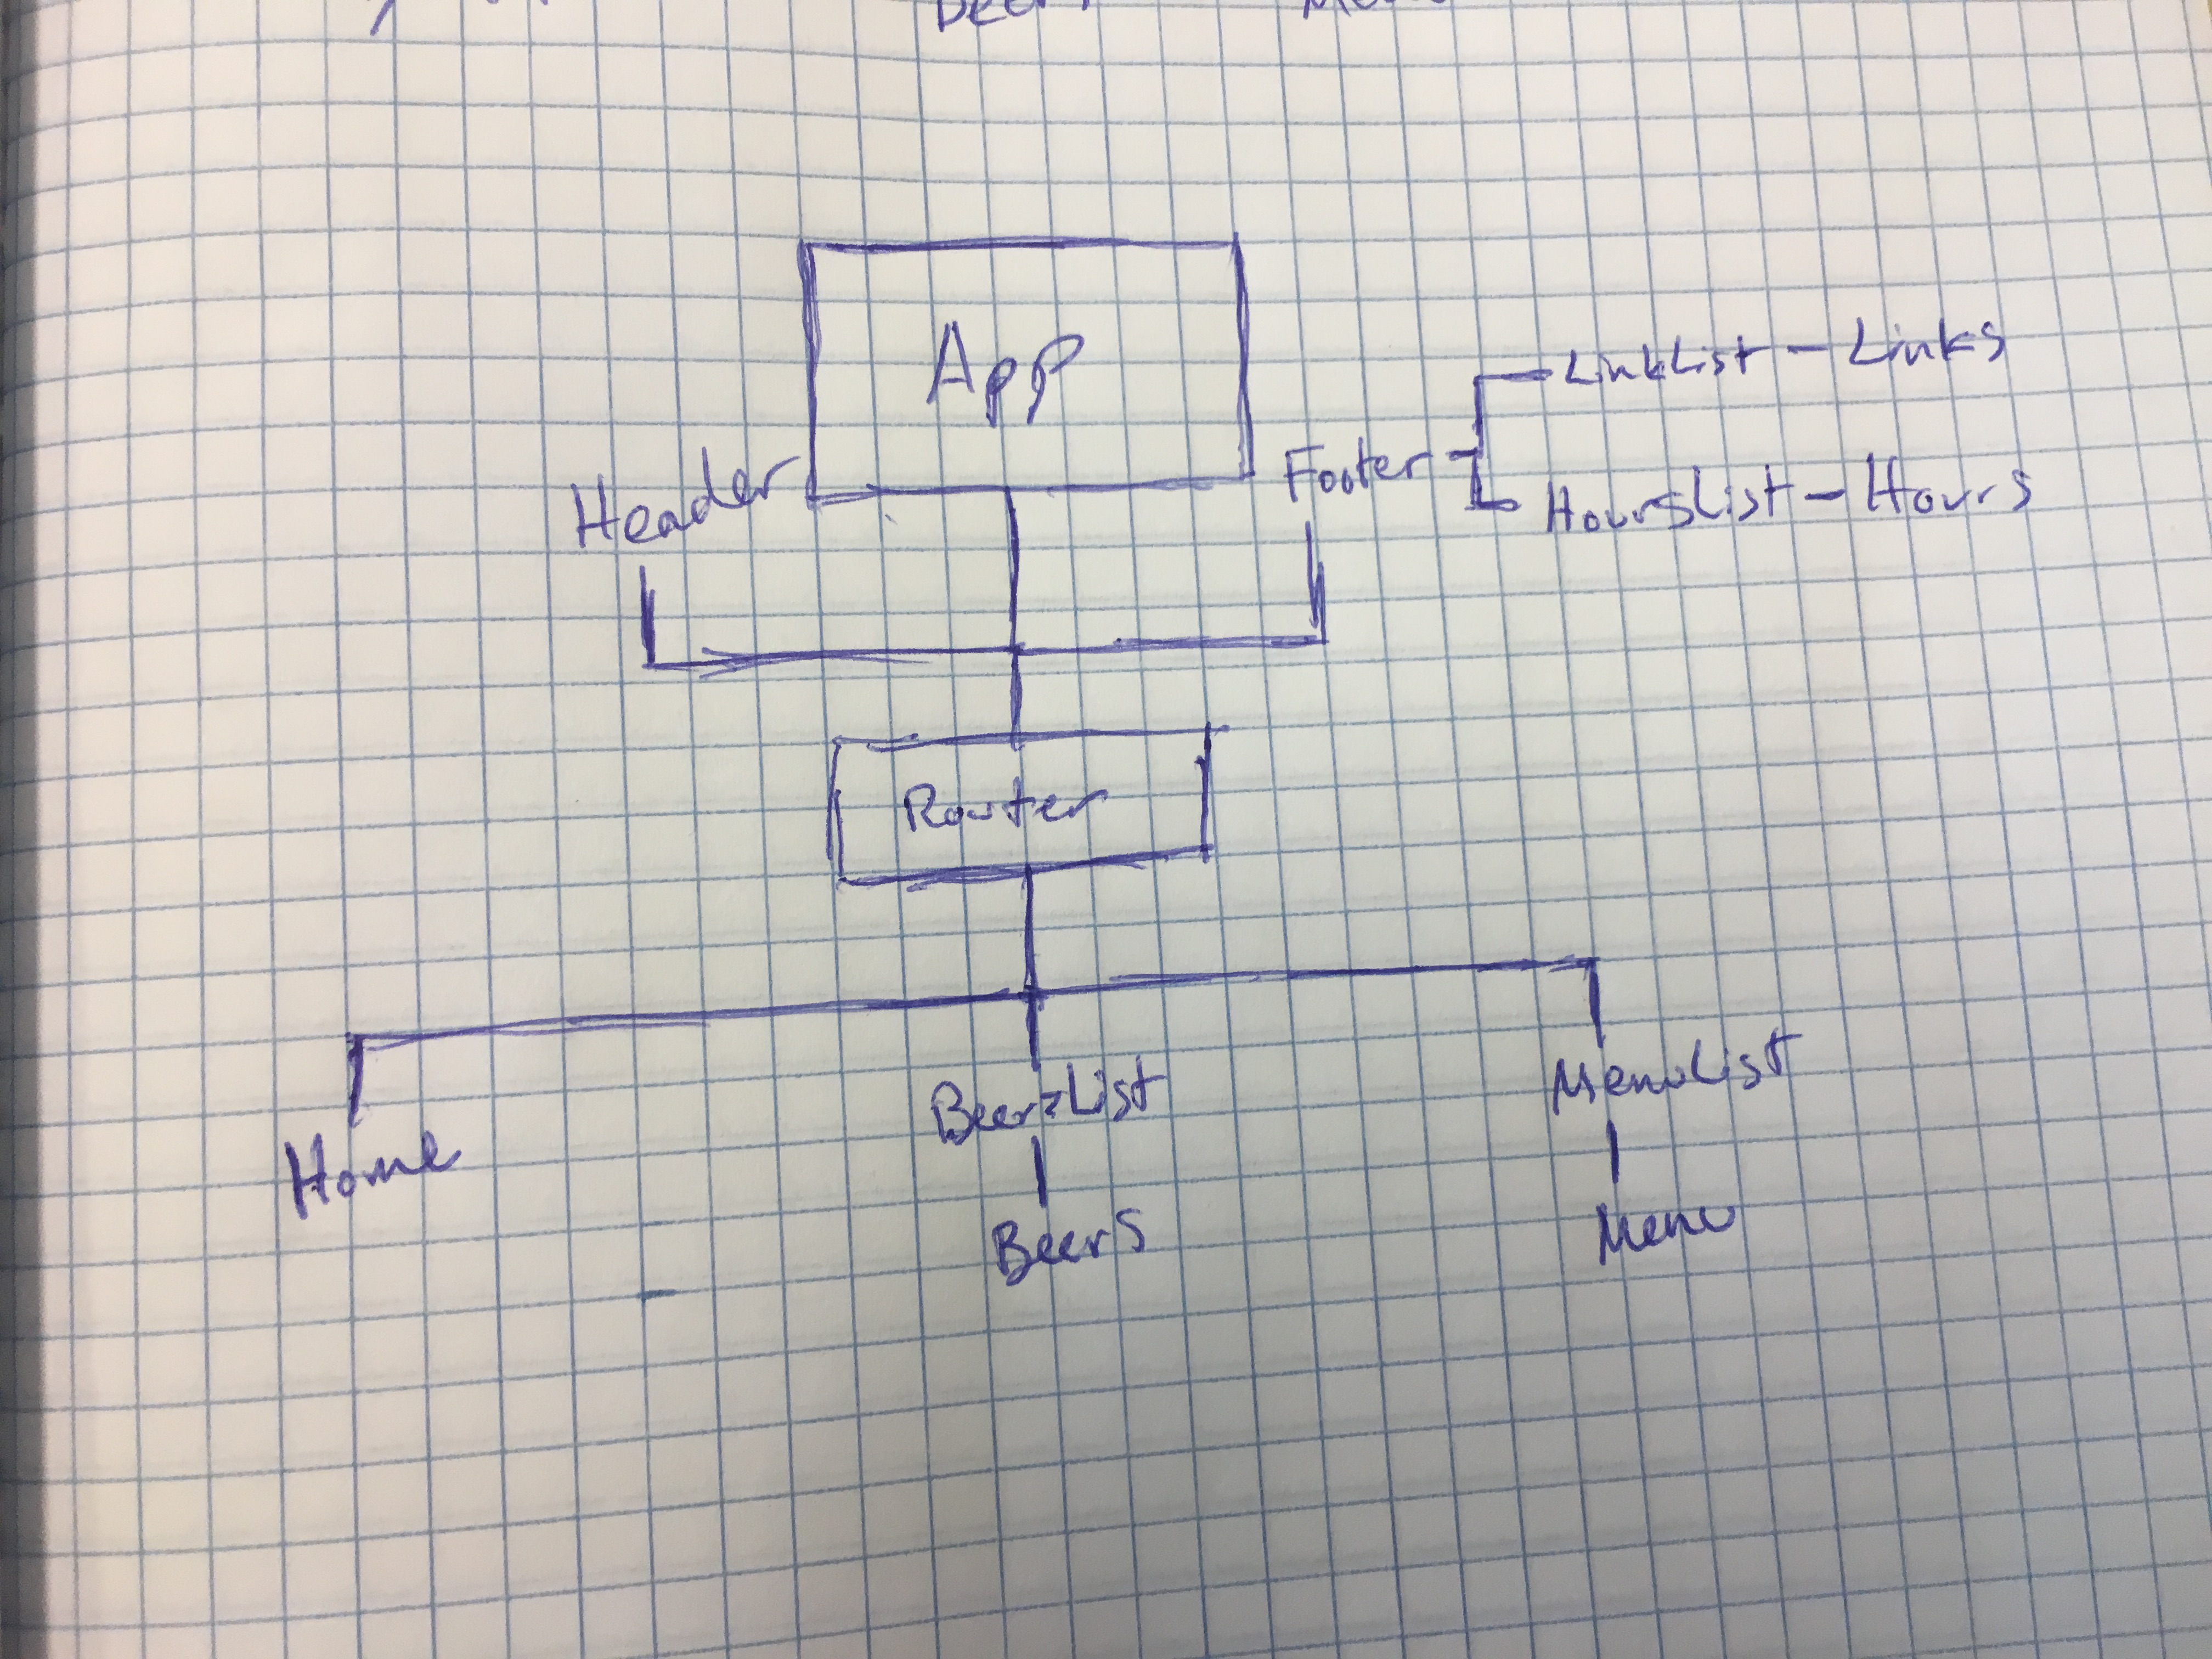 App
Header
Footer
LinkList - Links
HoursList - Hours
Router
Home
BeerList
MenuList
Beers
Menu